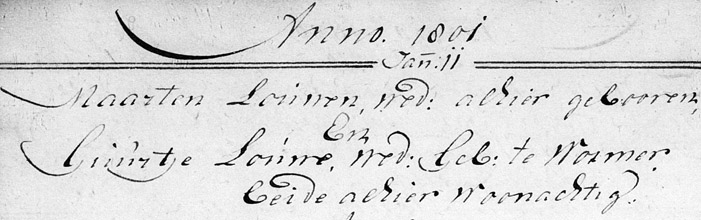 Anno. 1801
Jan̄: 11
Maarten Louwen, wed: alhier gebooren,
En
Guurtje Louwe, Wed: Geb: te Wormer.
beide alhier Woonachtig.